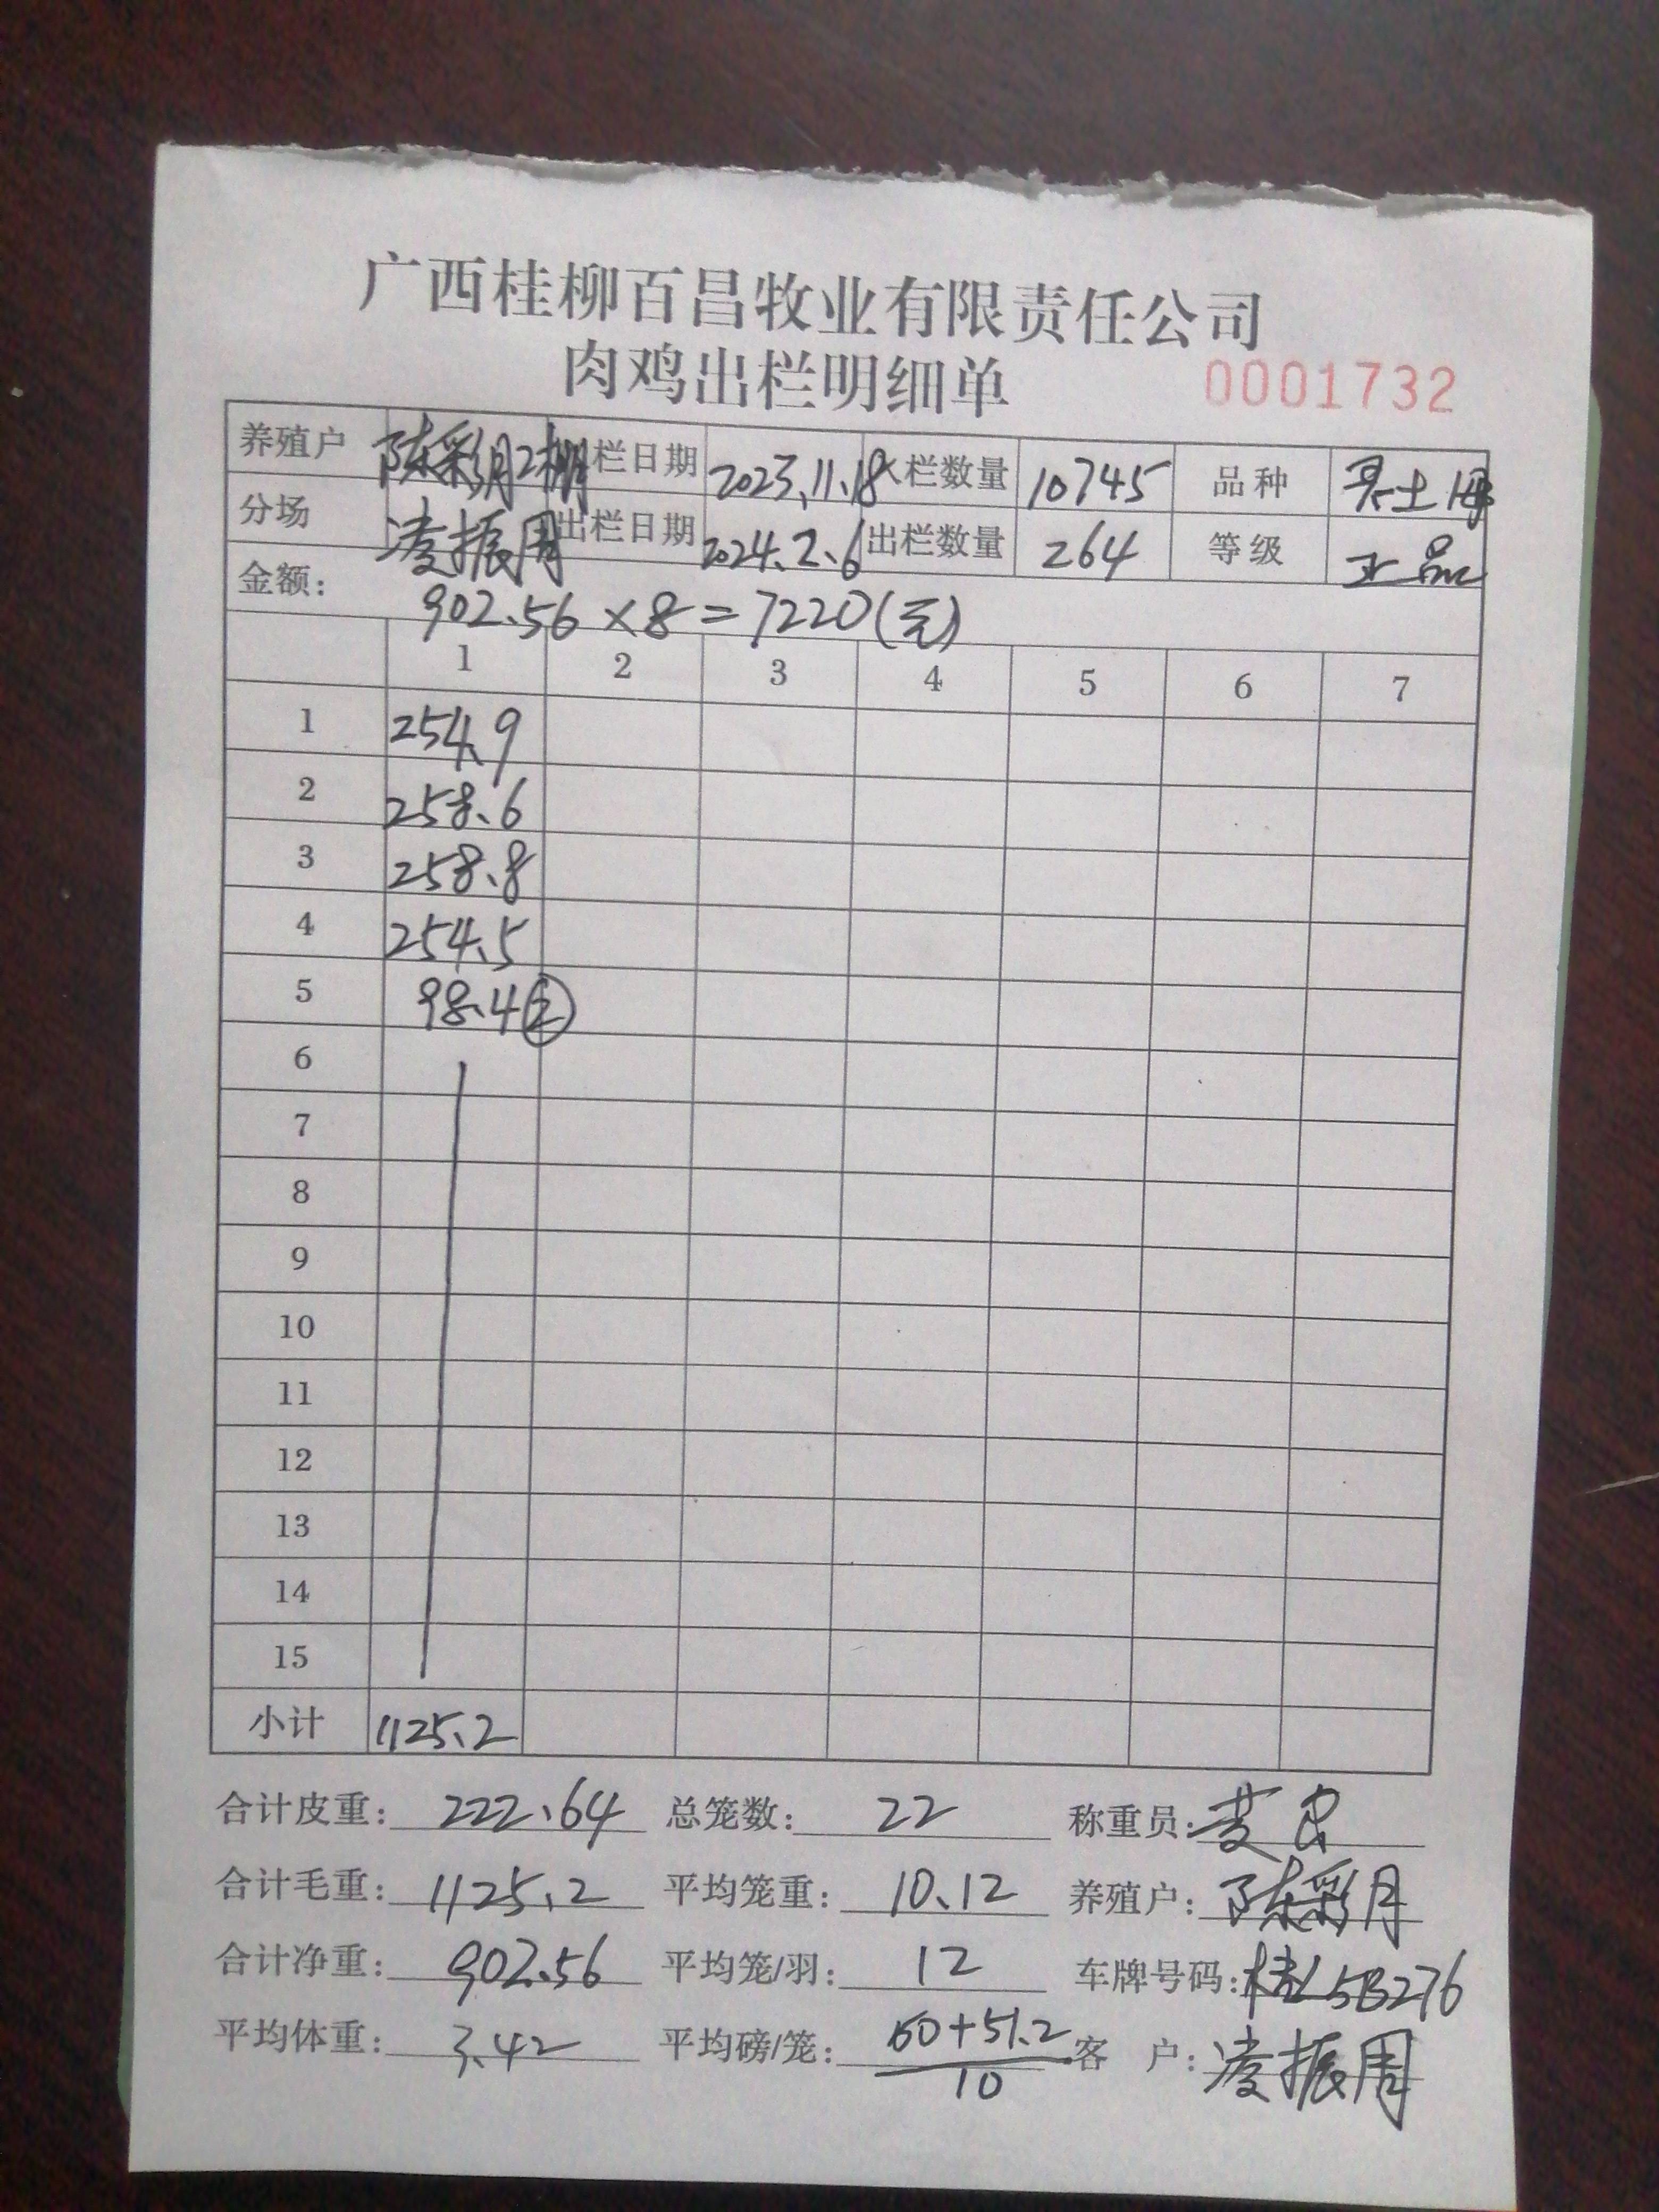 广西桂柳百昌牧业有限责任公司
肉鸡出栏明细单 0001732
养殖户 陈彩月2棚 栏日期 2023.11.18 栏数量 10745 品种
分场 凌振周 出栏日期 2024.2.6 出栏数量 264 等级 正品
金额: 902.56×8=7220(元)
1 2 3 4 5 6 7
1 254.9
2 258.6
3 258.8
4 254.5
5 98.4 ②
6
7
8
9
10
11
12
13
14
15
小计 1125.2
合计皮重: 222.64 总笼数: 22 称重员:
合计毛重: 1125.2 平均笼重: 10.12 养殖户: 陈彩月
合计净重: 902.56 平均笼/羽: 12 车牌号码: 桂L5B276
平均体重: 3.42 平均磅/笼: 50+51.2/10 客 户: 凌振周